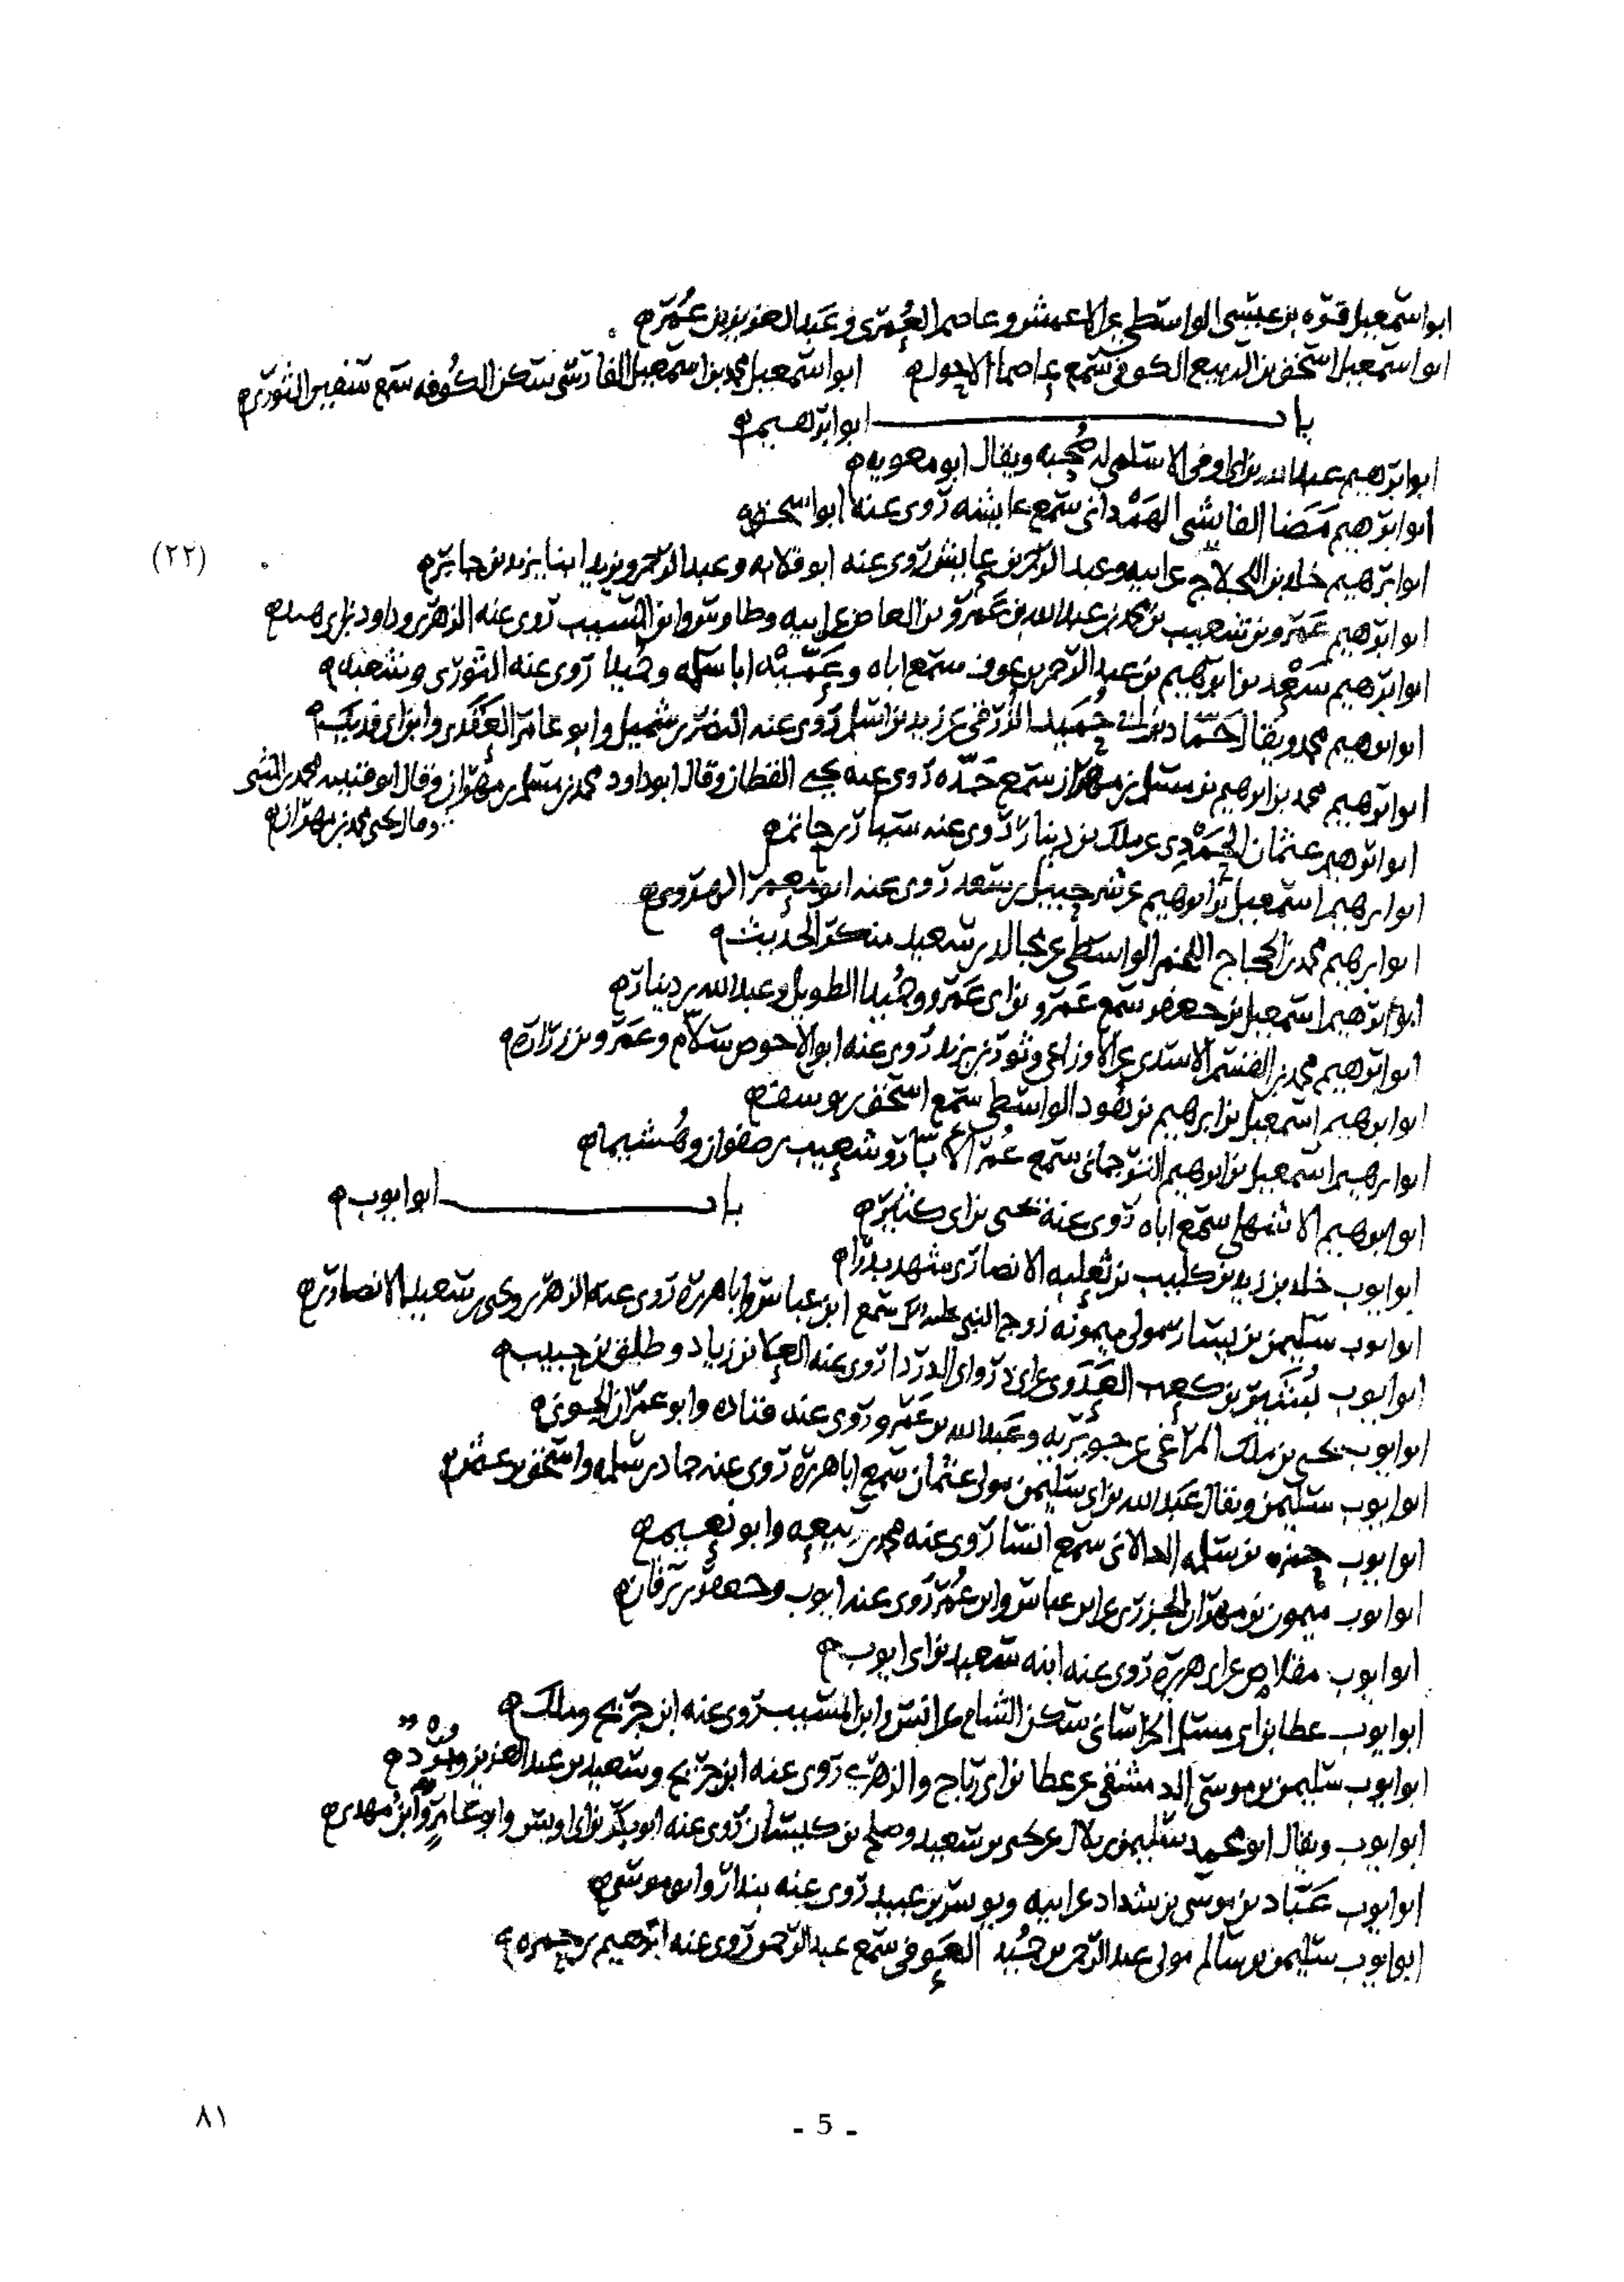 ابو اسمعيل قره بن عيسى الواسطي عن الاعمش وعاصم العُمَري وعبد العزيز بن عُمَر ه
ابو اسمعيل اسحق بن الربيع الكوفي سمع عاصما الاحول ه ابو اسمعيل محمد بن اسمعيل الفارسي سكن الكُوفه سمع سفين الثوري ه
باب ابو ابرهيم ه
ابو ابرهيم عبد الله بن ابي اوفى الاسلمي له صُحبه ويقال ابو معويه ه
ابو ابرهيم مَضَا الفايشي الهَمْداني سمع عايشه روى عنه ابو اسحق ه
ابو ابرهيم خلد بن اللجلاج عن ابيه وعبد الرحمن بن عايش روى عنه ابو قلابه وعبد الرحمن ويزيد ابنا يزيد بن جابر ه
(٢٢)
ابو ابرهيم عَمرو بن شعيب بن محمد بن عبد الله بن عَمرو بن العاص عن ابيه وطاوس وابن المسيب روى عنه الزهري وداود بن ابي هند ه
ابو ابرهيم سَعْد بن ابرهيم بن عبد الرحمن بن عوف سمع اباه وعَمَّيْه ابا سلمه وحُميدا روى عنه الثوري وشعبه ه
ابو ابرهيم محمد ويقال حمّاد بن ابي حُميد الزُرَقي عن زيد بن اسلم روى عنه النضر بن شميل وابو عامر العَقَدي وابن ابي فديك ه
ابو ابرهيم محمد بن ابرهيم بن مسلم بن مهران سمع جَدّه روى عنه يحيى القطان وقال ابو داود محمد بن مسلم بن مهران وقال ابو قتيبه محمد بن المثنى
وقال يحيى محمد بن مهران ه
ابو ابرهيم عثمان الحَمْدي عن ملك بن دينار روى عنه سيار بن حاتم ه
ابو ابرهيم اسمعيل بن ابرهيم عن شرحبيل بن سعد روى عنه ابو معمر الهروي ه
ابو ابرهيم محمد بن الحجاج اللخمي الواسطي عن مجالد بن سعيد منكر الحديث ه
ابو ابرهيم اسمعيل بن جعفر سمع عَمرو بن ابي عَمرو وحُميدا الطويل وعبد الله بن دينار ه
ابو ابرهيم محمد بن القسم الاسدي عن الاوزاعي وثور بن يزيد روى عنه ابو الاحوص سلّام وعَمرو بن زراره ه
ابو ابرهيم اسمعيل بن ابرهيم بن هُود الواسطي سمع اسحق بن يوسف ه
ابو ابرهيم اسمعيل بن ابرهيم الترجماني سمع عُمر الابّار وشعيب بن صفوان وهُشيما ه
ابو ابرهيم الاشهلي سمع اباه روى عنه يحيى بن ابي كثير ه
باب ابو ايوب ه
ابو ايوب خلد بن زيد بن كليب بن ثعلبه الانصاري شهد بدرا ه
ابو ايوب سليمن بن يسار مولى ميمونه زوج النبي صلى الله عليه سمع ابن عباس وابا هريره روى عنه الزهري ويحيى بن سعيد الانصاري ه
ابو ايوب بُشَير بن كعب العَدَوي عن ابي ذر وابي الدردا روى عنه العلا بن زياد وطلق بن حبيب ه
ابو ايوب يحيى بن ملك المراغي عن جويريه وعَبد الله بن عَمرو روى عنه قتاده وابو عمران الجوني ه
ابو ايوب سليمن ويقال عَبد الله بن ابي سليمن مولى عثمان سمع ابا هريره روى عنه حماد بن سلمه واسحق بن عثمن ه
ابو ايوب حمزه بن سلمه الدالاني سمع انسا روى عنه محمد بن ربيعه وابو نُعيم ه
ابو ايوب ميمون بن مهران الجزري عن ابن عباس وابن عُمر روى عنه ايوب وجعفر بن برقان ه
ابو ايوب مقلاص عن ابي هريره روى عنه ابنه سعيد بن ابي ايوب ه
ابو ايوب عطا بن ابي مسلم الخراساني سكن الشام عن انس وابن المسيب روى عنه ابن جريج وملك ه
ابو ايوب سليمن بن موسى الدمشقي عن عطا بن ابي رباح والزهري روى عنه ابن جريج وسعيد بن عبد العزيز وبُرد ه
ابو ايوب ويقال ابو محمد سليمن بن بلال عن يحيى بن سعيد وصلح بن كيسان روى عنه ابو بكر بن ابي اويس وابو عامر وابن مهدي ه
ابو ايوب عَبّاد بن موسى بن شداد عن ابيه ويونس بن عبيد روى عنه بندار وابو موسى ه
ابو ايوب سليمن بن سالم مولى عبد الرحمن بن حُميد العَوفي سمع عبد الرحمن روى عنه ابرهيم بن حمزه ه
- 5 -
٨١